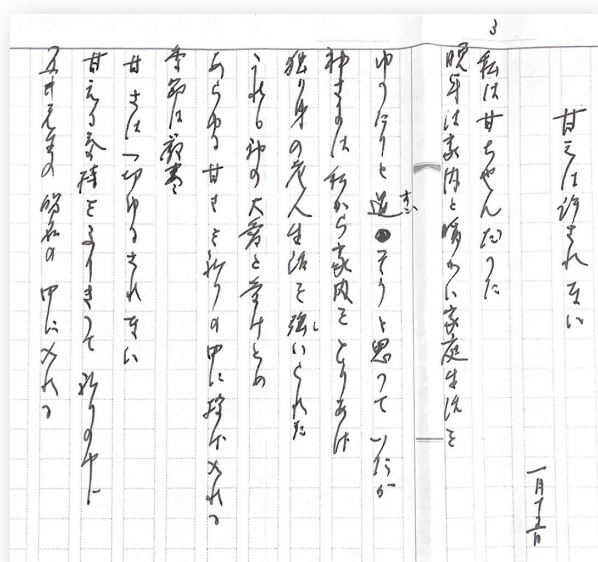 3
甘えは許されない
一月十五日
私は甘ちゃんだった
晩年は家内と静かに家庭生活を
ゆったりと過そうと思っていたが
神さまは私から家内をとりあげ
独り身の老人生活を強いられた
これも神の大愛と受けとめ
あらゆる甘さを祈りの中に投げ入れる
季節は厳寒
甘さは一切ゆるされない
甘える気持をふりきって祈りの中に
五井先生の の中に入れる